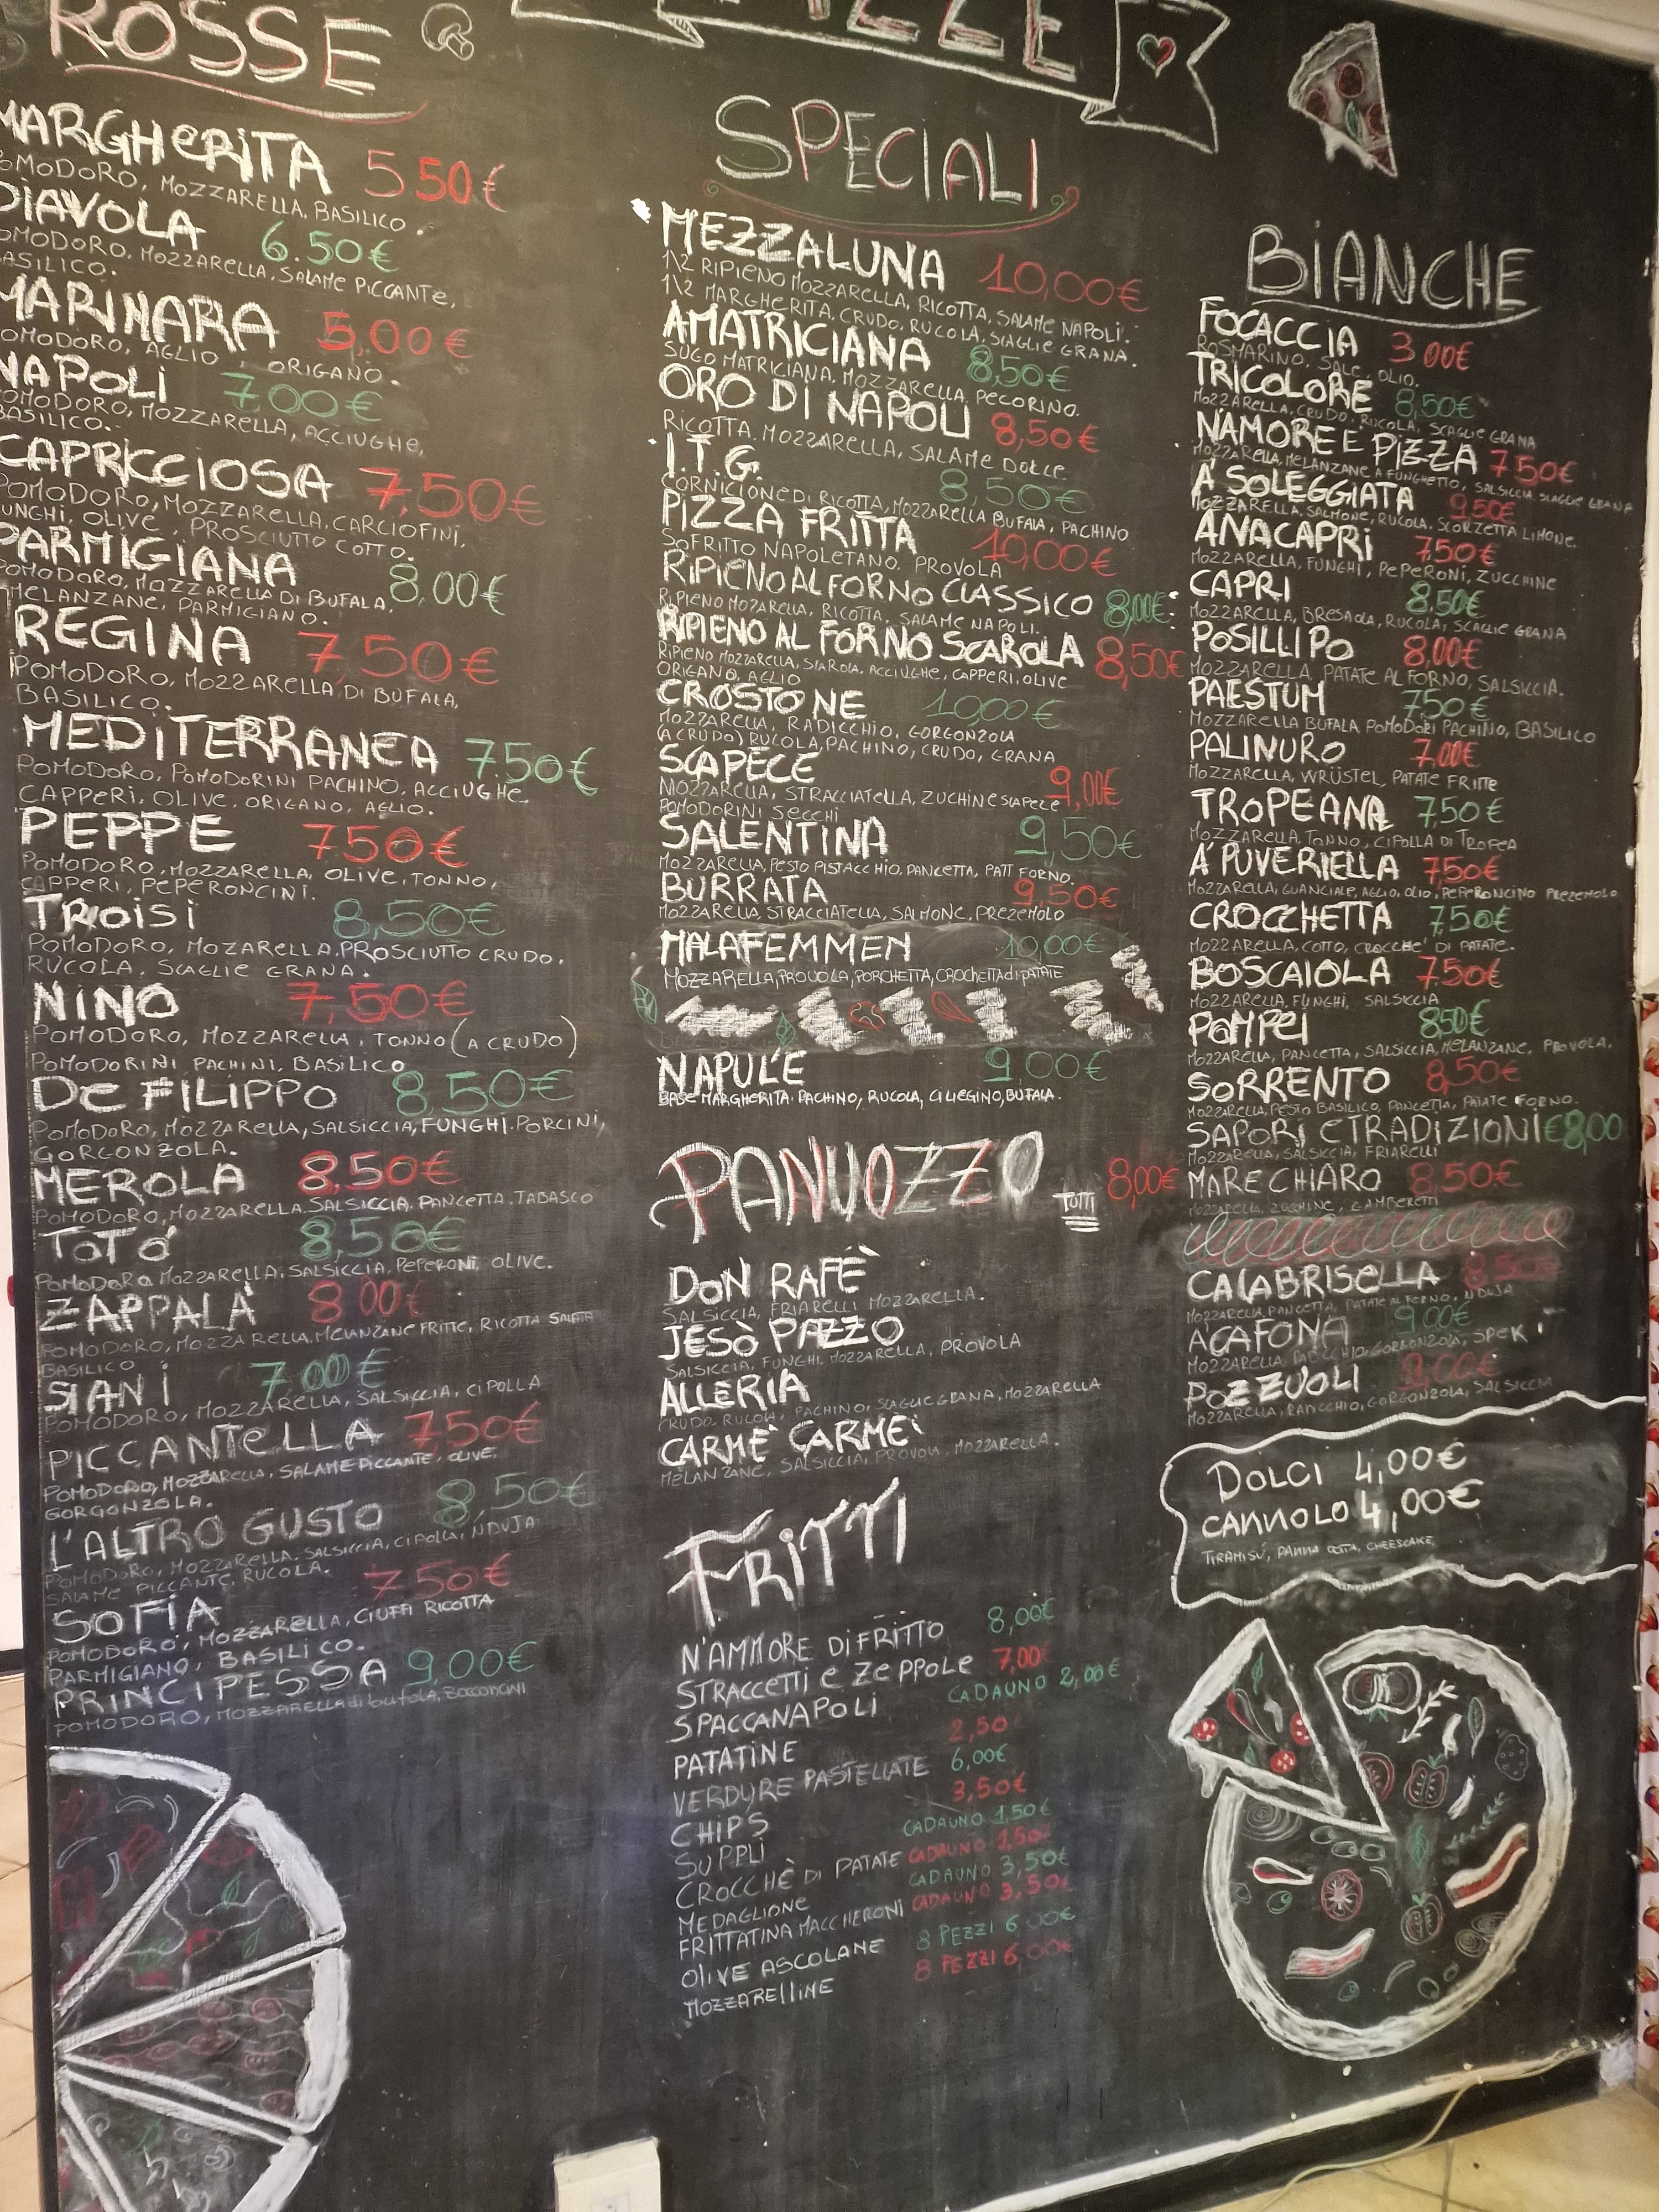 ROSSE
MARGHERITA 5.50€
POMODORO, MOZZARELLA, BASILICO.
DIAVOLA 6.50€
POMODORO, MOZZARELLA, SALAME PICCANTE,
BASILICO.
MARINARA 5,00€
POMODORO, AGLIO, ORIGANO.
NAPOLI 7.00€
POMODORO, MOZZARELLA, ACCIUGHE,
BASILICO.
CAPRICCIOSA 7,50€
POMODORO, MOZZARELLA, CARCIOFINI,
FUNGHI, OLIVE, PROSCIUTTO COTTO.
PARMIGIANA 8.00€
POMODORO, MOZZARELLA DI BUFALA,
MELANZANE, PARMIGIANO.
REGINA 7,50€
POMODORO, MOZZARELLA DI BUFALA,
BASILICO.
MEDITERRANEA 7.50€
POMODORO, POMODORINI PACHINO, ACCIUGHE
CAPPERI, OLIVE, ORIGANO, AGLIO.
PEPPE 7.50€
POMODORO, MOZZARELLA, OLIVE, TONNO,
CAPPERI, PEPERONCINI.
TROISI 8,50€
POMODORO, MOZARELLA, PROSCIUTTO CRUDO,
RUCOLA, SCAGLIE GRANA.
NINO 7,50€
POMODORO, MOZZARELLA, TONNO (A CRUDO)
POMODORINI PACHINI, BASILICO
DE FILIPPO 8,50€
POMODORO, MOZZARELLA, SALSICCIA, FUNGHI PORCINI,
GORGONZOLA.
MEROLA 8.50€
POMODORO, MOZZARELLA, SALSICCIA, PANCETTA, TABASCO
TOTÓ 8,50€
POMODORO MOZZARELLA, SALSICCIA, PEPERONI, OLIVE.
ZAPPALÀ 8.00€
POMODORO, MOZZARELLA, MELANZANE FRITTE, RICOTTA SALATA
BASILICO
SIANI 7.00€
POMODORO, MOZZARELLA, SALSICCIA, CIPOLLA
PICCANTELLA 7,50€
POMODORO, MOZZARELLA, SALAME PICCANTE, OLIVE,
GORGONZOLA.
L'ALTRO GUSTO 8,50€
POMODORO, MOZZARELLA, SALSICCIA, CIPOLLA, NDUJA
SALAME PICCANTE, RUCOLA.
SOFIA 7.50€
POMODORO, MOZZARELLA, CIUFFI RICOTTA
PARMIGIANO, BASILICO.
PRINCIPESSA 9.00€
POMODORO, MOZZARELLA di bufala, BOCCONCINI
SPECIALI
MEZZALUNA 10,00€
1\2 RIPIENO MOZZARELLA, RICOTTA, SALAME NAPOLI.
1\2 MARGHERITA, CRUDO, RUCOLA, SCAGLIE GRANA.
AMATRICIANA 8,50€
SUGO MATRICIANA, MOZZARELLA, PECORINO.
ORO DI NAPOLI 8,50€
RICOTTA, MOZZARELLA, SALAME DOLCE
I.T.G. 8,50€
CORNICIONE DI RICOTTA, MOZZARELLA BUFALA, PACHINO
PIZZA FRITTA 10,00€
SOFRITTO NAPOLETANO, PROVOLA
RIPIENO AL FORNO CLASSICO 8,00€
RIPIENO MOZARELLA, RICOTTA, SALAME NAPOLI.
RIPIENO AL FORNO SCAROLA 8,50€
RIPIENO MOZZARELLA, SCAROLA, ACCIUGHE, CAPPERI, OLIVE
ORIGANO, AGLIO
CROSTONE 10,00€
MOZZARELLA, RADICCHIO, GORGONZOLA
(A CRUDO) RUCOLA, PACHINO, CRUDO, GRANA
SCAPECE 9,00€
MOZZARELLA, STRACCIATELLA, ZUCHINE SCAPECE
POMODORINI SECCHI
SALENTINA 9,50€
MOZZARELLA, PESTO PISTACCHIO, PANCETTA, PATT FORNO.
BURRATA 9,50€
MOZZARELLA, STRACCIATELLA, SALMONE, PREZEMOLO
MALAFEMMEN 10,00€
MOZZARELLA, PROVOLA, PORCHETTA, CROCHETTA di PATATE
NAPUL'E 9,00€
BASE MARGHERITA PACHINO, RUCOLA, CILIEGINO, BUFALA.
PANUOZZO TUTTI 8,00€
DON RAFÈ
SALSICCIA, FRIARELLI MOZZARELLA.
JESÒ PAZZO
SALSICCIA, FUNGHI, MOZZARELLA, PROVOLA
ALLERIA
CRUDO, RUCOLA, PACHINO, SCAGLIE GRANA, MOZZARELLA
CARMÈ CARMÈ
MELANZANE, SALSICCIA, PROVOLA, MOZZARELLA.
FRITTI
N'AMMORE DI FRITTO 8,00€
STRACCETTI E ZEPPOLE 7,00
SPACCANAPOLI CADAUNO 2,00€
PATATINE 2,50
VERDURE PASTELLATE 6,00€
CHIPS 3,50€
SUPPLÌ CADAUNO 1,50€
CROCCHÈ DI PATATE CADAUNO 1,50€
MEDAGLIONE CADAUNO 3,50€
FRITTATINA MACCHERONI CADAUNO 3,50€
OLIVE ASCOLANE 8 PEZZI 6,00€
MOZZARELLINE 8 PEZZI 6,00€
BIANCHE
FOCACCIA 3.00€
ROSMARINO, SALE, OLIO.
TRICOLORE 8,50€
MOZZARELLA, CRUDO, RUCOLA, SCAGLIE GRANA
N'AMORE E PIZZA 7.50€
MOZZARELLA, MELANZANE A FUNGHETTO, SALSICCIA, SCAGLIE GRANA
A' SOLEGGIATA 9,50€
MOZZARELLA, SALMONE, RUCOLA, SCORZETTA LIMONE.
ANACAPRI 7.50€
MOZZARELLA, FUNGHI, PEPERONI, ZUCCHINE
CAPRI 8,50€
MOZZARELLA, BRESAOLA, RUCOLA, SCAGLIE GRANA
POSILLIPO 8,00€
MOZZARELLA, PATATE AL FORNO, SALSICCIA.
PAESTUM 7,50€
MOZZARELLA BUFALA POMODORI PACHINO, BASILICO
PALINURO 7,00€
MOZZARELLA, WRÜSTEL, PATATE FRITTE
TROPEANA 7.50€
MOZZARELLA, TONNO, CIPOLLA DI TROPEA
A' PUVERIELLA 7.50€
MOZZARELLA, GUANCIALE, AGLIO, OLIO, PEPERONCINO PREZEMOLO
CROCCHETTA 7,50€
MOZZARELLA, COTTO, CROCCHE' DI PATATE.
BOSCAIOLA 7.50€
MOZZARELLA, FUNGHI, SALSICCIA
POMPEI 8.50€
MOZZARELLA, PANCETTA, SALSICCIA, MELANZANE, PROVOLA.
SORRENTO 8,50€
MOZZARELLA, PESTO BASILICO, PANCETTA, PATATE FORNO.
SAPORI E TRADIZIONI €8,00
MOZZARELLA, SALSICCIA, FRIARELLI
MARECHIARO 8,50€
MOZZARELLA, ZUCCHINE, GAMBERETTI
CALABRISELLA
MOZZARELLA, PANCETTA, PATATE AL FORNO, NDUJA
ACAFONA 9.00€
MOZZARELLA, GORGONZOLA, SPEK
POZZUOLI 9,00€
MOZZARELLA, RADICCHIO, GORGONZOLA, SALSICCIA
DOLCI 4,00€
CANNOLO 4,00€
TIRAMISÙ, PANNA COTTA, CHEESCAKE